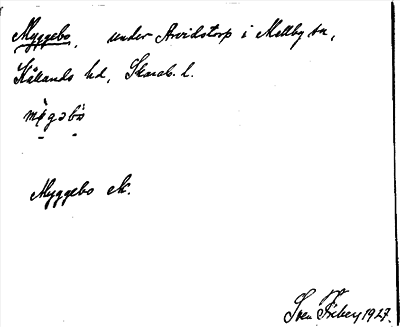 Myggebo, under Arvidstorp i Mellby sn,
Kållands hd, Skarab. l.
mỳgəbò
Myggebo ek.
Sven Friberg 1927.